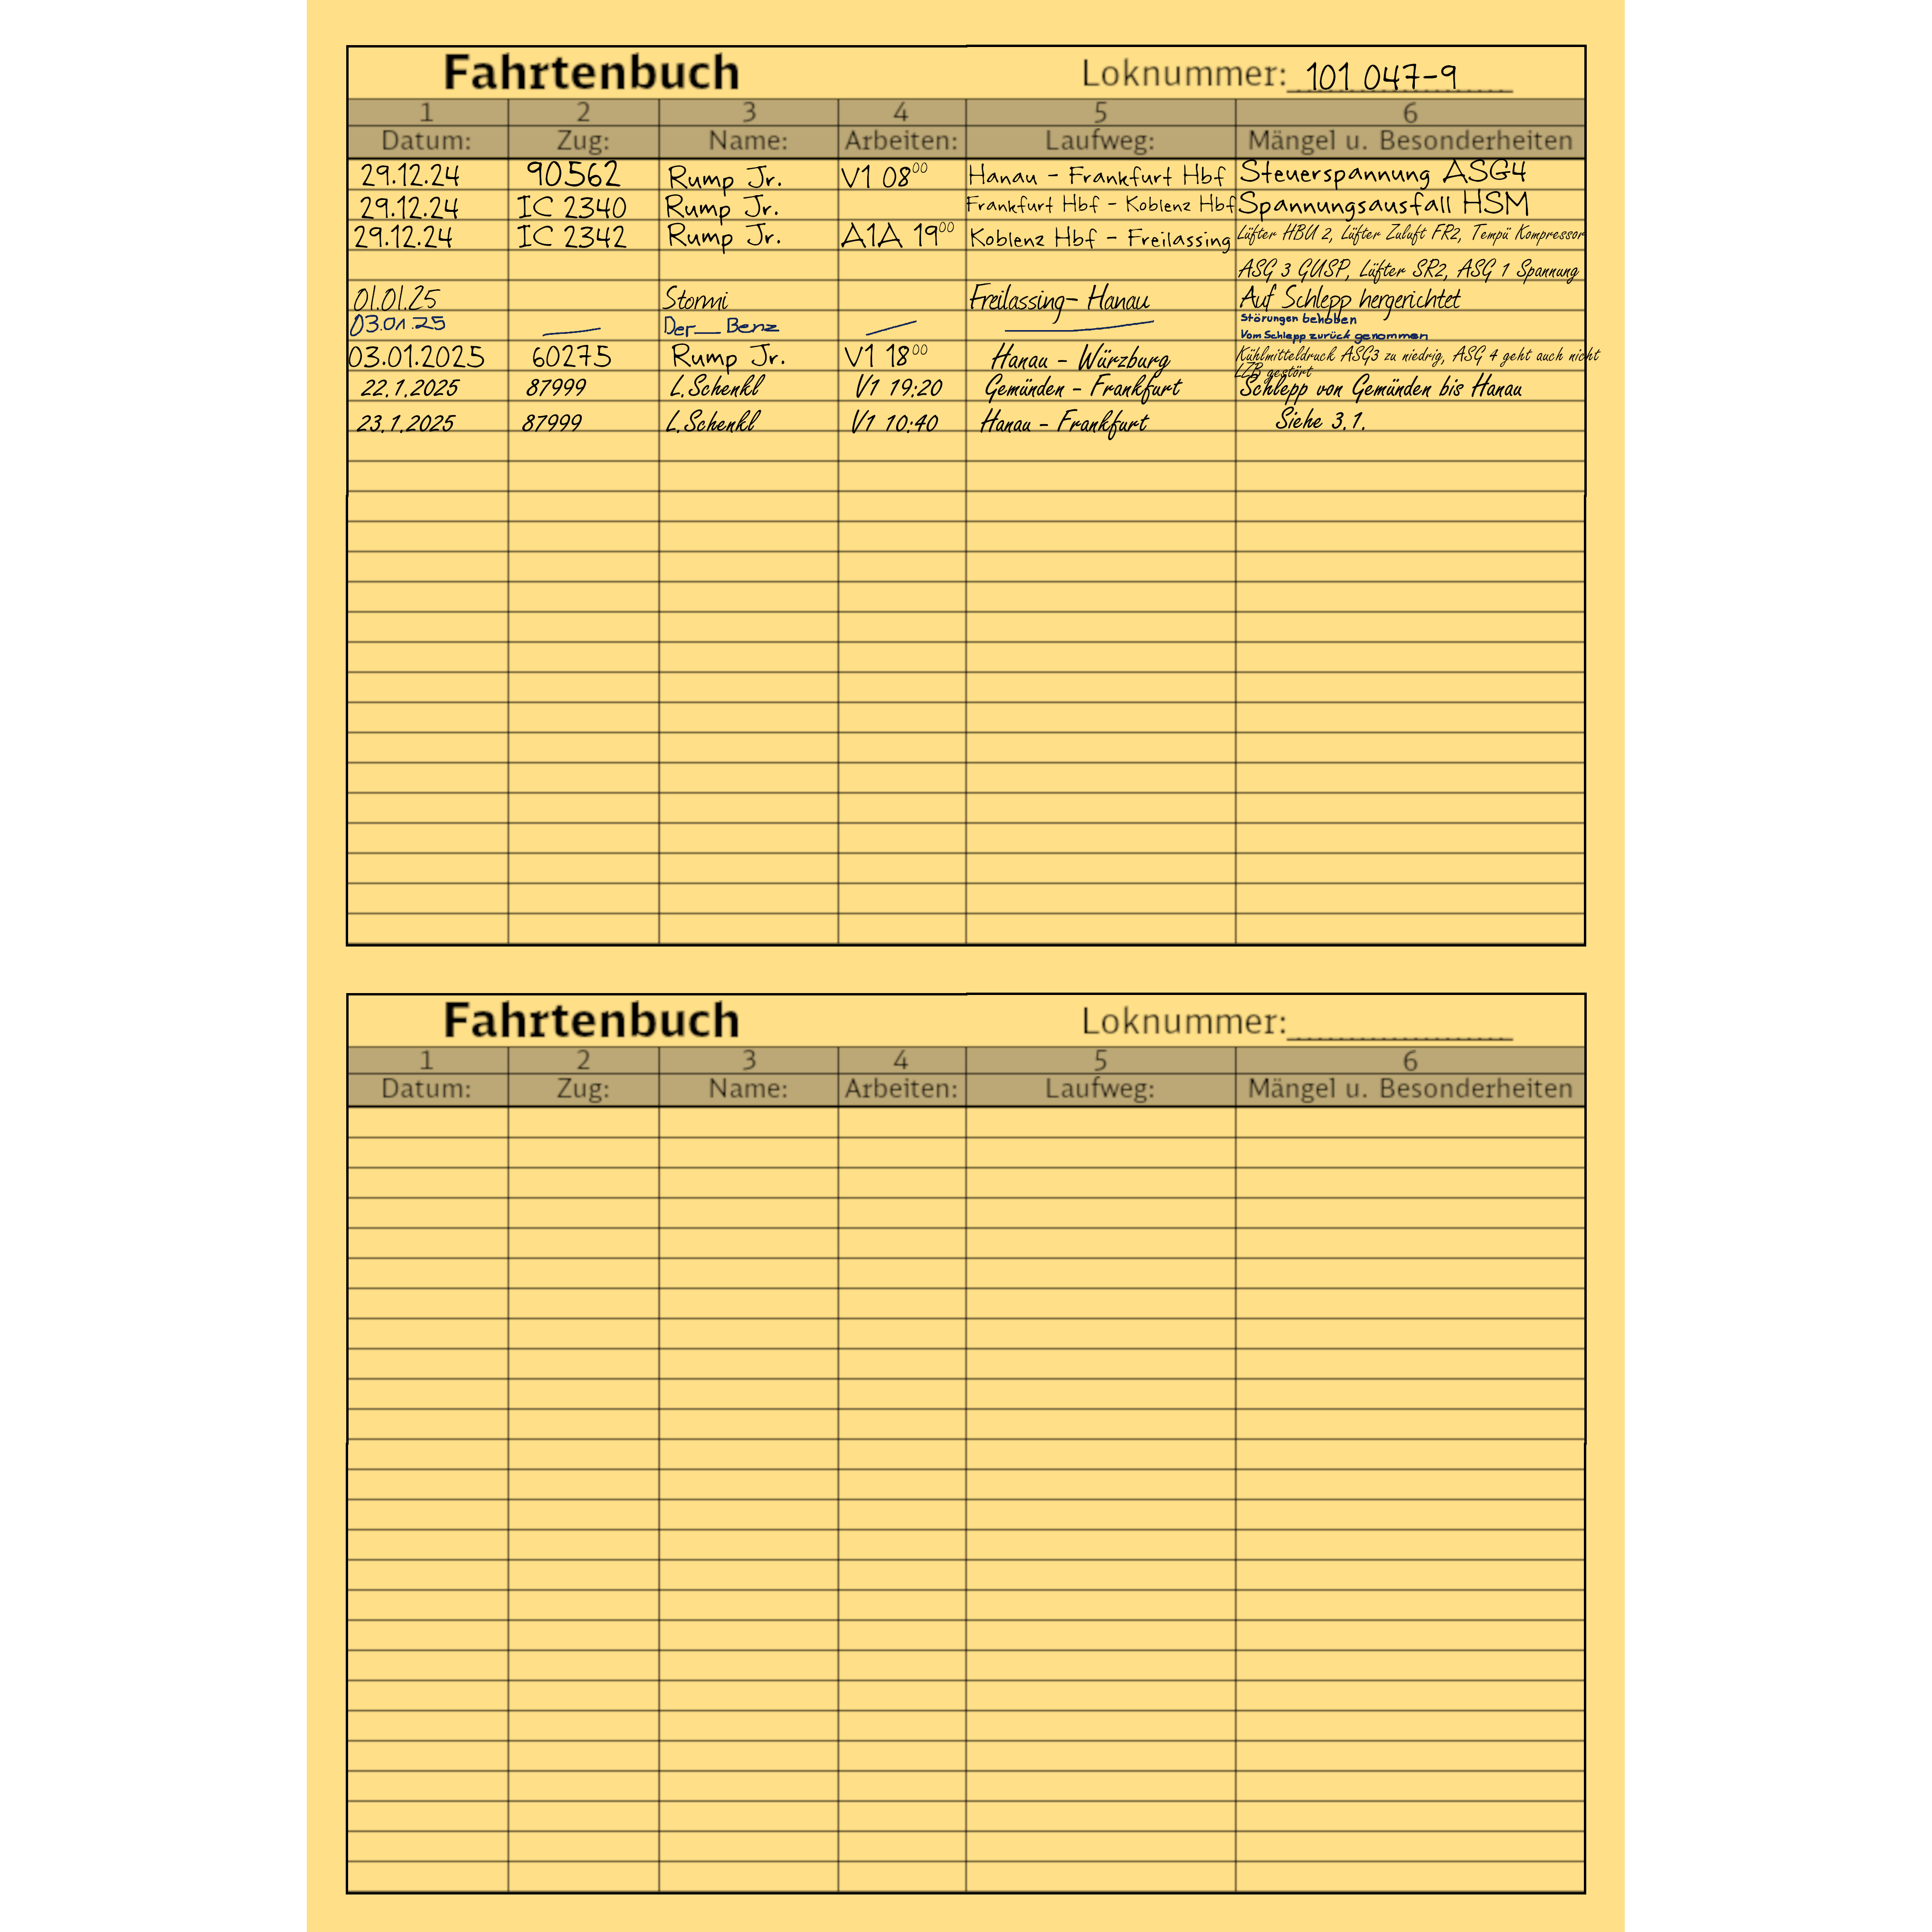 Fahrtenbuch Loknummer: 101 047-9
1 2 3 4 5 6
Datum: Zug: Name: Arbeiten: Laufweg: Mängel u. Besonderheiten
29.12.24 90562 Rump Jr. V1 08⁰⁰ Hanau - Frankfurt Hbf Steuerspannung ASG4
29.12.24 IC 2340 Rump Jr. Frankfurt Hbf - Koblenz Hbf Spannungsausfall HSM
29.12.24 IC 2342 Rump Jr. A1A 19⁰⁰ Koblenz Hbf - Freilassing Lüfter HBU 2, Lüfter Zuluft FR2, Tempü Kompressor
ASG 3 GUSP, Lüfter SR2, ASG 1 Spannung
01.01.25 Stormi Freilassing- Hanau Auf Schlepp hergerichtet
03.01.25 Der__Benz Störungen behoben
Vom Schlepp zurück genommen
03.01.2025 60275 Rump Jr. V1 18⁰⁰ Hanau - Würzburg Kühlmitteldruck ASG3 zu niedrig, ASG 4 geht auch nicht
LZB gestört
22.1.2025 87999 L.Schenkl V1 19:20 Gemünden - Frankfurt Schlepp von Gemünden bis Hanau
23.1.2025 87999 L.Schenkl V1 10:40 Hanau - Frankfurt Siehe 3.1.
Fahrtenbuch Loknummer:
1 2 3 4 5 6
Datum: Zug: Name: Arbeiten: Laufweg: Mängel u. Besonderheiten